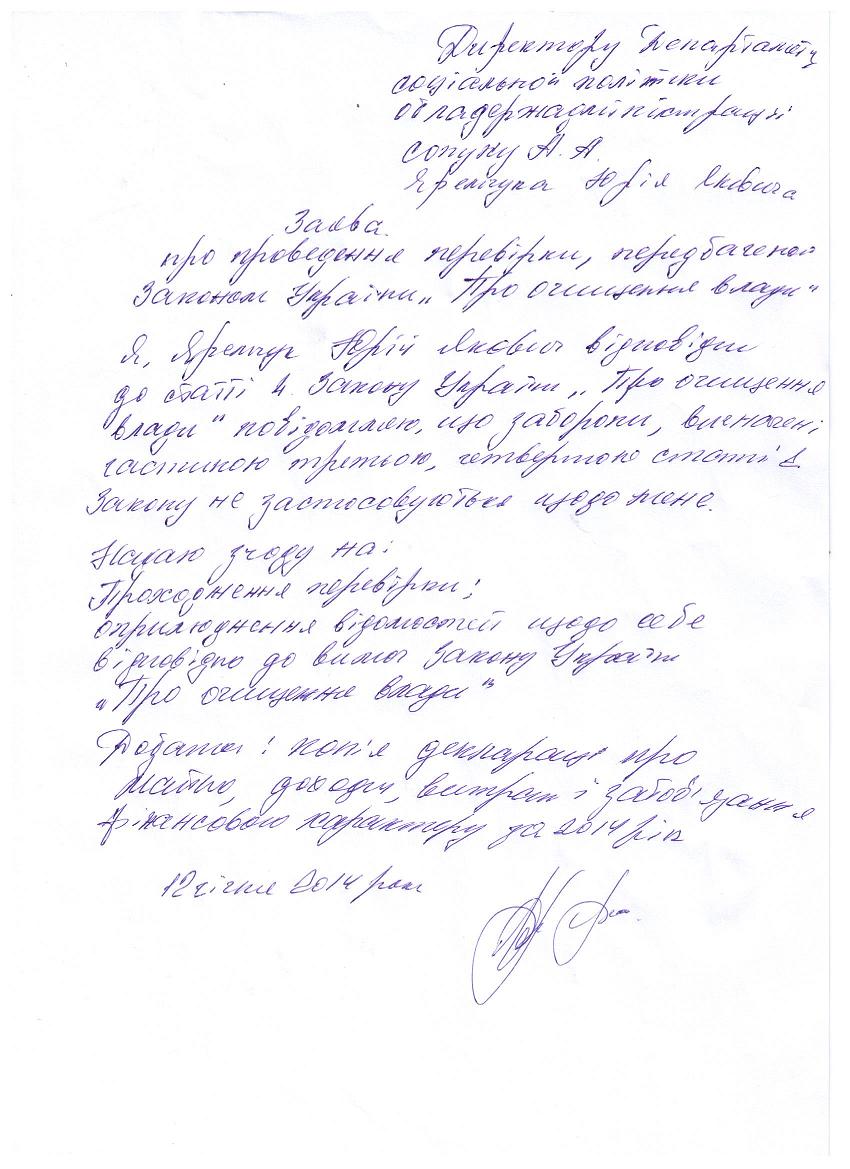 Директору Департаменту
соціальної політики
облдержадміністрації
Сопуку А. А.
Юрія Яковича
Заява
про проведення перевірки, передбаченої
Законом України „Про очищення влади"
Я, Юрій Якович відповідно
до статті 4 Закону України „Про очищення
влади" повідомляю, що заборони, визначені
частиною третьою, четвертою статті 1
Закону не застосовуються щодо мене.
Надаю згоду на:
Проходження перевірки;
оприлюднення відомостей щодо себе
відповідно до вимог Закону України
„Про очищення влади"
Додаток: копія декларації про
майно, доходи, витрати і зобов'язання
фінансового характеру за 2014 рік
12 січня 2014 року